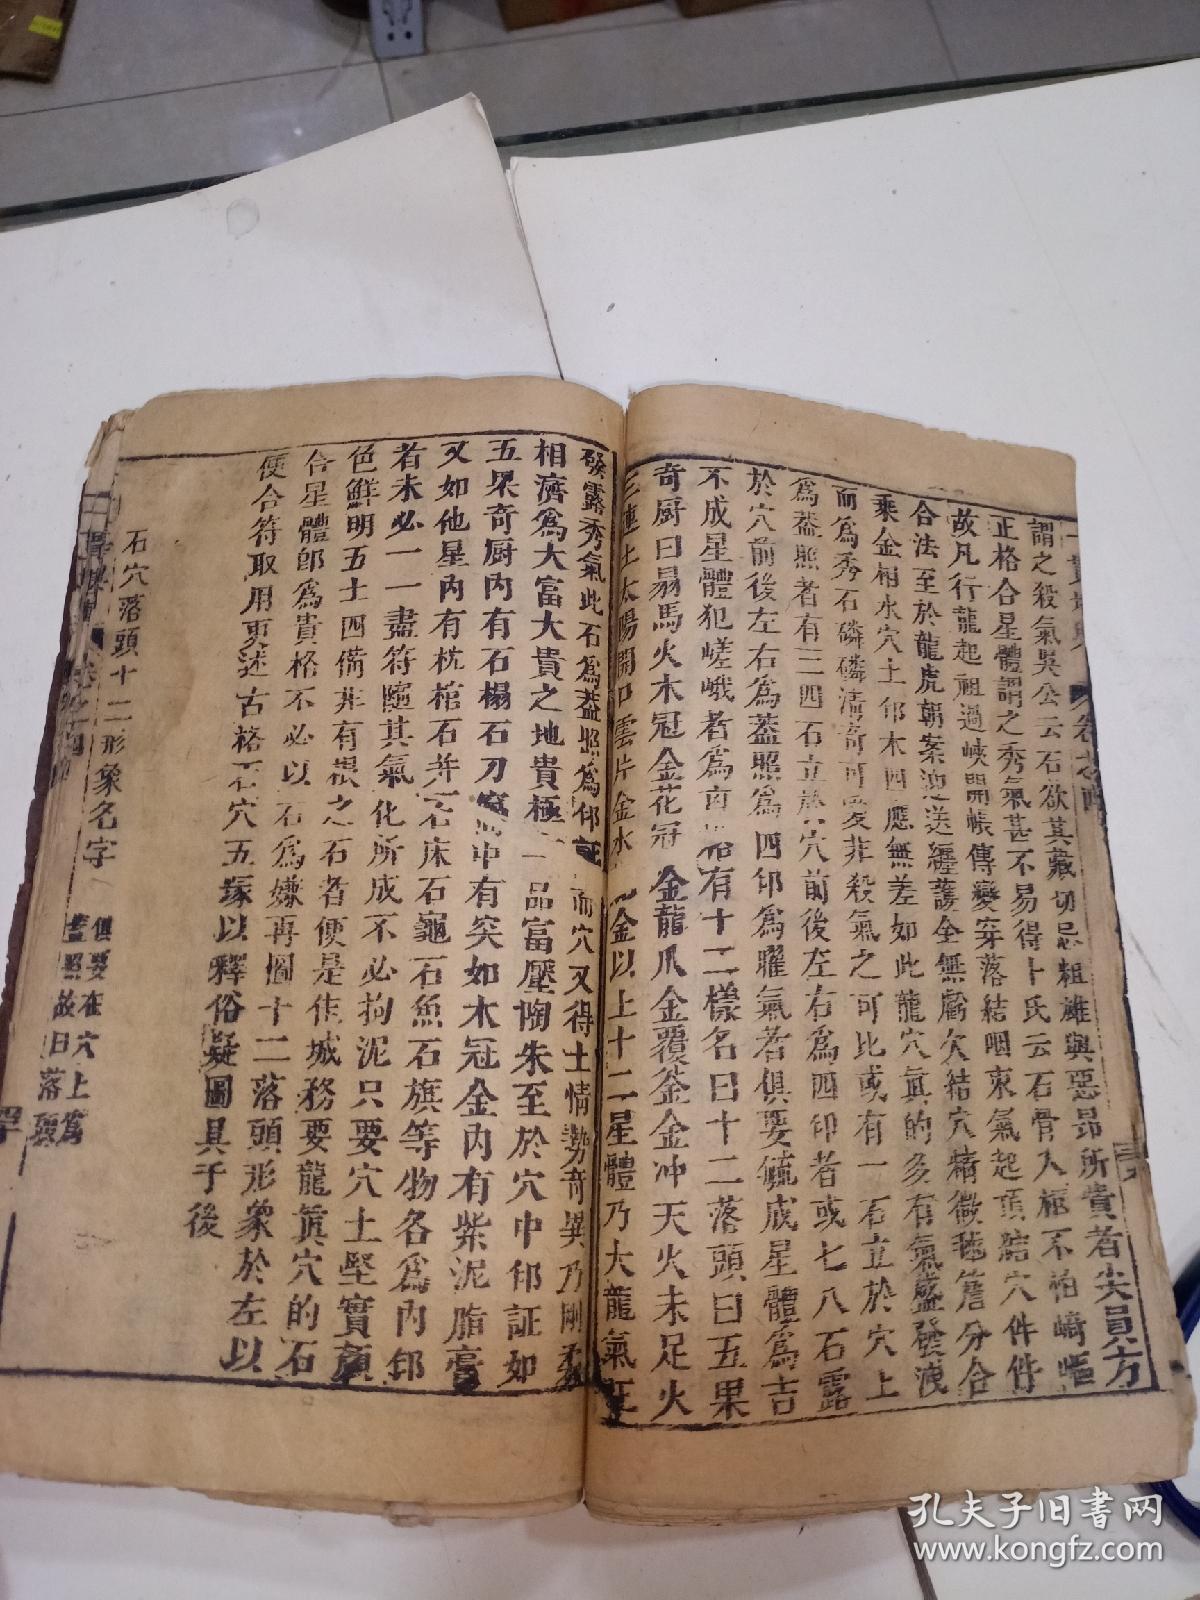 謂之殺氣吳公云石欲其藏切忌粗雄與惡昂所貴者尖員方
正格合星體謂之秀氣甚不易得卜氏云石骨入柩不怕崎嶇
故凡行龍起祖過峽開帳傳變穿落結咽束氣起頂結穴件件
合法至於龍虎朝案迎送纏護全無虧欠結穴精微毬簷分合
乘金相水穴土印木四應無差如此龍穴眞的多有氣盛發洩
而爲秀石磷磷淸奇可愛非殺氣之可比或有一石立於穴上
爲葢照者有三四石立於穴前後左右爲四印者或七八石露
於穴前後左右爲葢照爲四印爲曜氣者俱要毓成星體爲吉
不成星體犯嵯峨者爲凶格有十二樣名曰十二落頭曰五果
奇厨曰昜馬火木冠金花冠金龍爪金覆釜金冲天火未足火
三連土太陽開口雲片金水金以上十二星體乃大龍氣旺
發露秀氣此石爲葢照爲印証而穴又得土情勢奇異乃剛柔
相濟爲大富大貴之地貴極一品富壓陶朱至於穴中印証如
五果奇厨內有石榻石刀窩中有突如木冠金內有柴泥脂膏
又如他星內有枕棺石并石床石龜石魚石旗等物各爲內印
者未必一一盡符隨其氣化所成不必拘泥只要穴土堅實顏
色鮮明五土四備非有根之石者便是佳城務要龍眞穴的石
合星體郎爲貴格不必以石爲嫌再圖十二落頭形象於左以
便合符取用更述古格石穴五塚以釋俗疑圖具于後
石穴落頭十二形象名字
俱要在穴上爲
葢照故曰落頭
孔夫子旧书网
www.kongfz.com